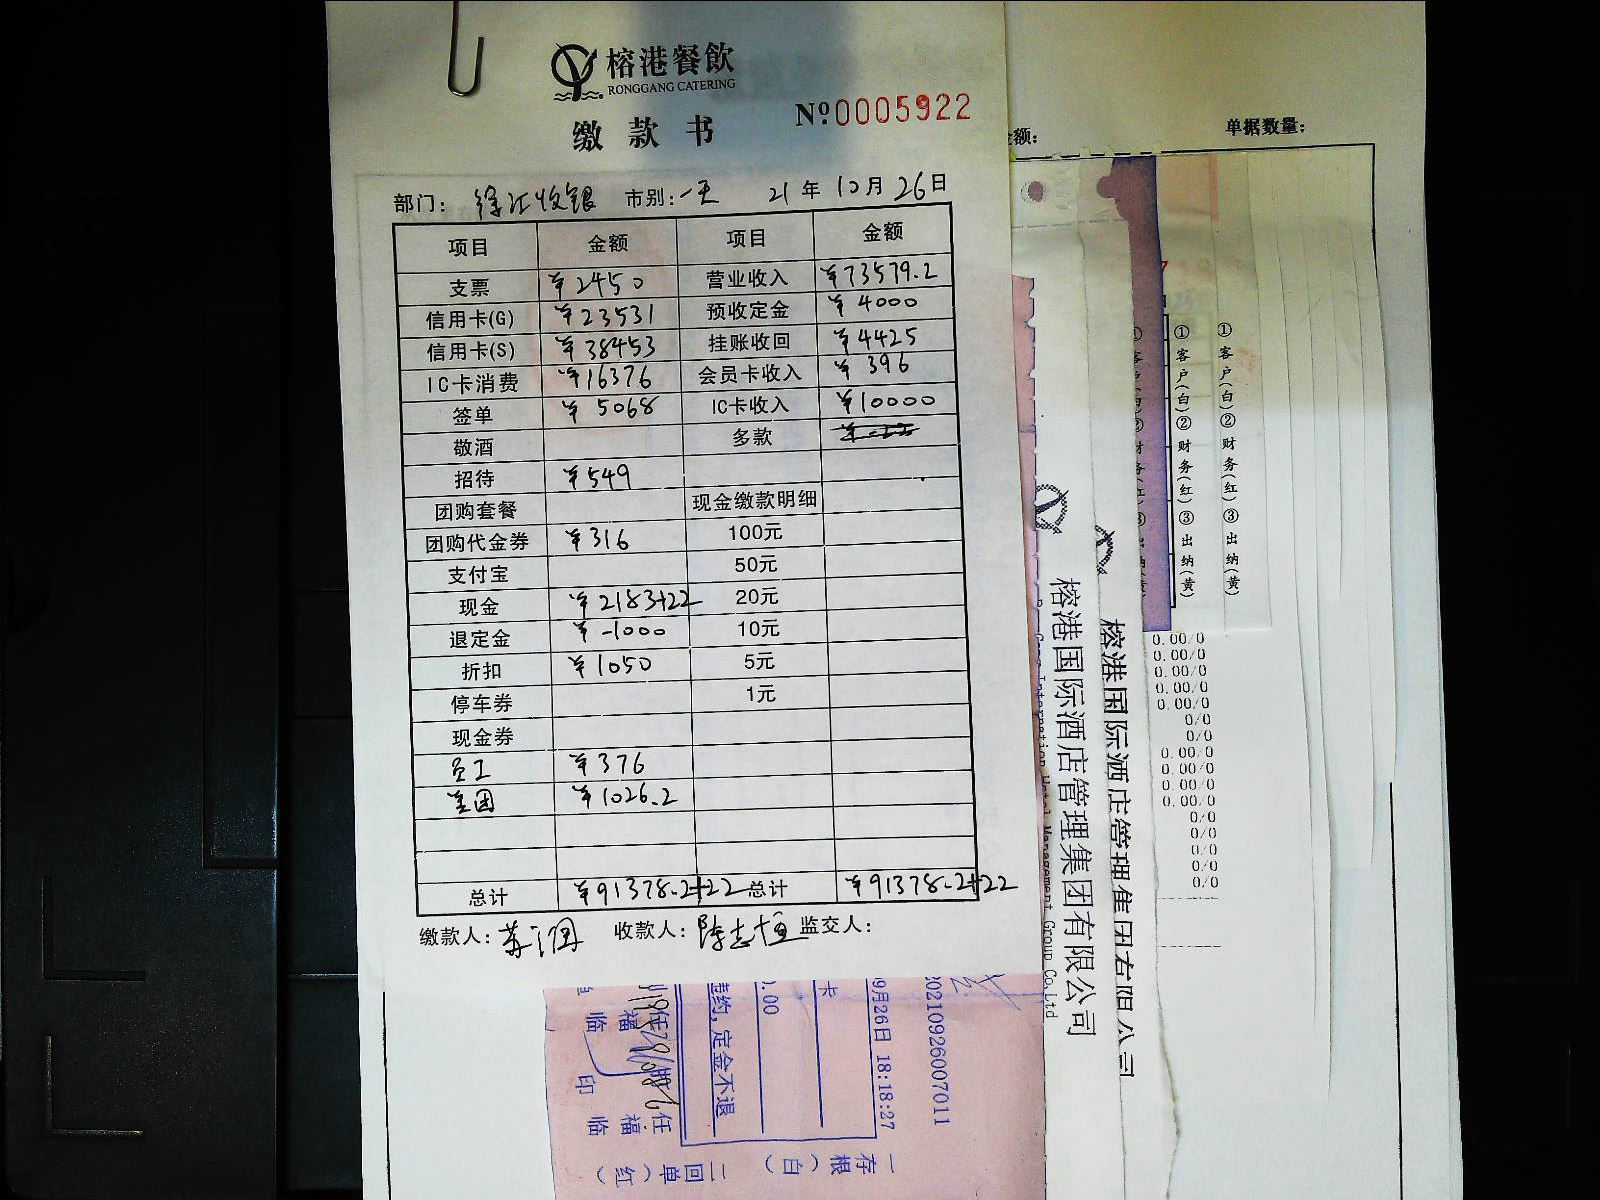 榕港餐飲
RONGGANG CATERING
缴款书
Nº0005922
部门: 徐汇收银 市别: 一天 21年10月26日
项目 金额 项目 金额
支票 ¥2450 营业收入 ¥73579.2
信用卡(G) ¥23531 预收定金 ¥4000
信用卡(S) ¥38453 挂账收回 ¥4425
IC卡消费 ¥16376 会员卡收入 ¥396
签单 ¥5068 IC卡收入 ¥10000
敬酒 多款
招待 ¥549
团购套餐 现金缴款明细
团购代金券 ¥316 100元
支付宝 50元
现金 ¥2183+22 20元
退定金 ¥-1000 10元
折扣 ¥1050 5元
停车券 1元
现金券
员工 ¥376
美团 ¥1026.2
总计 ¥91378.2+22 总计 ¥91378.2+22
缴款人: 收款人: 陈志恒 监交人:
额:
单据数量:
①客户(白)②财务(红)③出纳(黄)
①客户(白)②财务(红)③出纳(黄)
榕港国际酒店管理集团有限公司
榕港国际酒店管理集团有限公司
0.00/0
0.00/0
0.00/0
0.00/0
0.00/0
0/0
0/0
0.00/0
0.00/0
0.00/0
0.00/0
0/0
0/0
0/0
0/0
0/0
20210926007011
9月26日 18:18:27
卡
.00
违约,定金不退
一存根(白)
二回单(红)